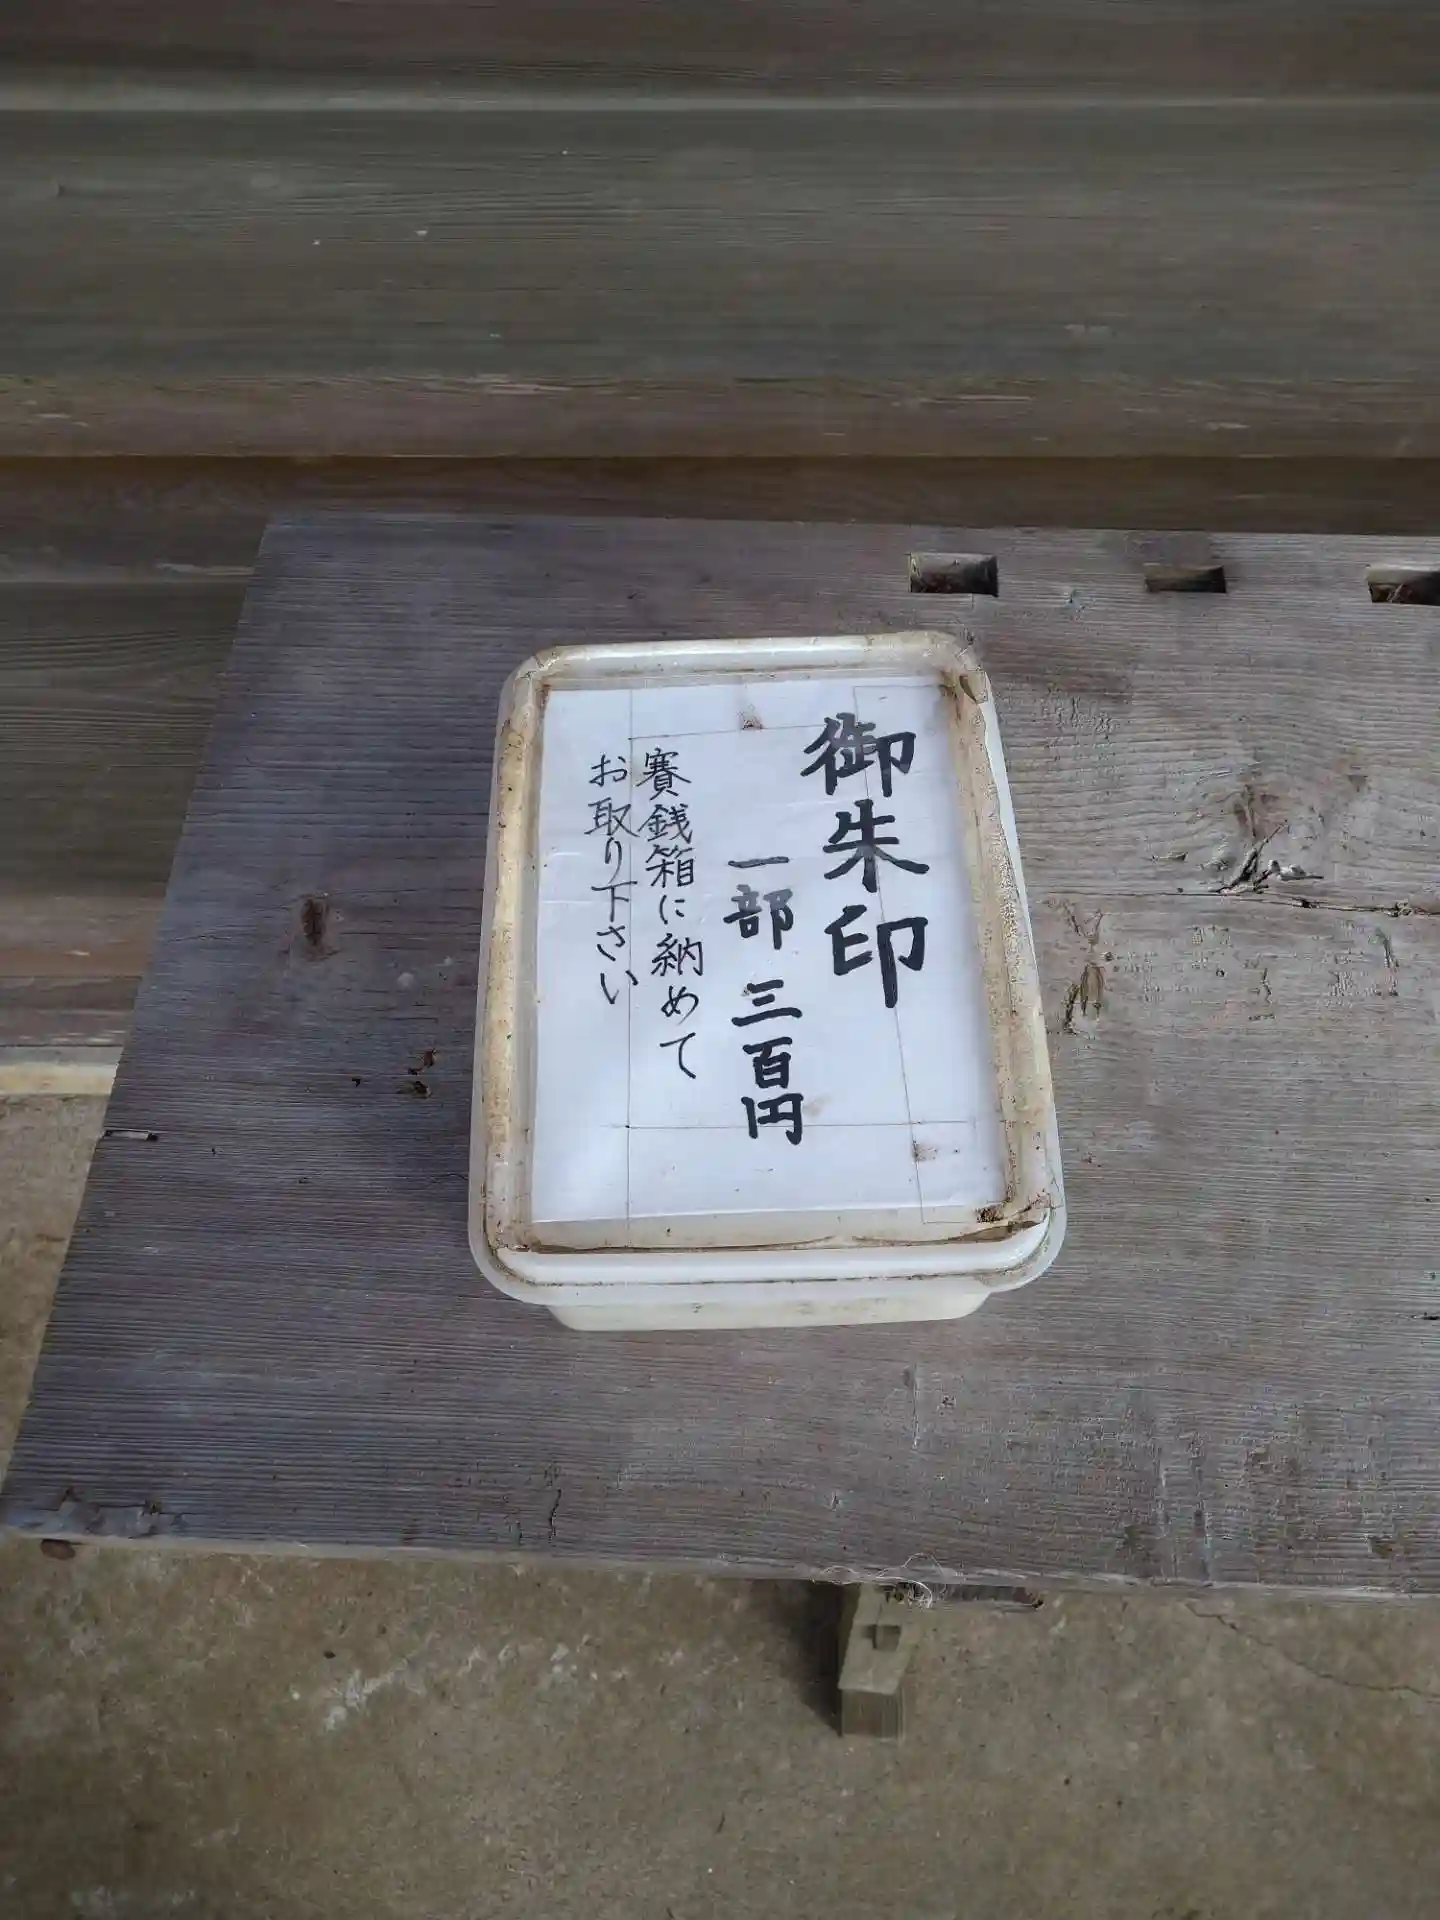 御朱印
一部 三百円
賽銭箱に納めて
お取り下さい